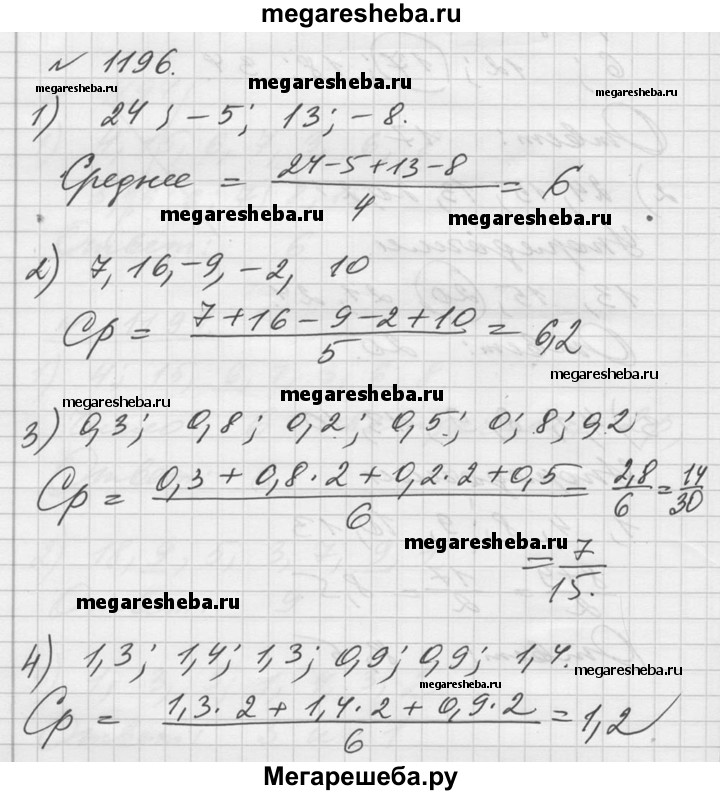 megaresheba.ru
№ 1196.
megaresheba.ru megaresheba.ru megaresheba.ru
1) 24; -5; 13; -8.
Среднее = (24-5+13-8)/4 = 6
megaresheba.ru megaresheba.ru
2) 7, 16, -9, -2, 10
Ср = (7+16-9-2+10)/5 = 6,2
megaresheba.ru megaresheba.ru megaresheba.ru
3) 0,3; 0,8; 0,2; 0,5; 0; 8; 0,2
Ср = (0,3+0,8·2+0,2·2+0,5)/6 = 2,8/6 = 14/30
megaresheba.ru
= 7/15.
megaresheba.ru
4) 1,3; 1,4; 1,3; 0,9; 0,9; 1,4.
megaresheba.ru megaresheba.ru
Ср = (1,3·2+1,4·2+0,9·2)/6 = 1,2
Мегарешеба.ру